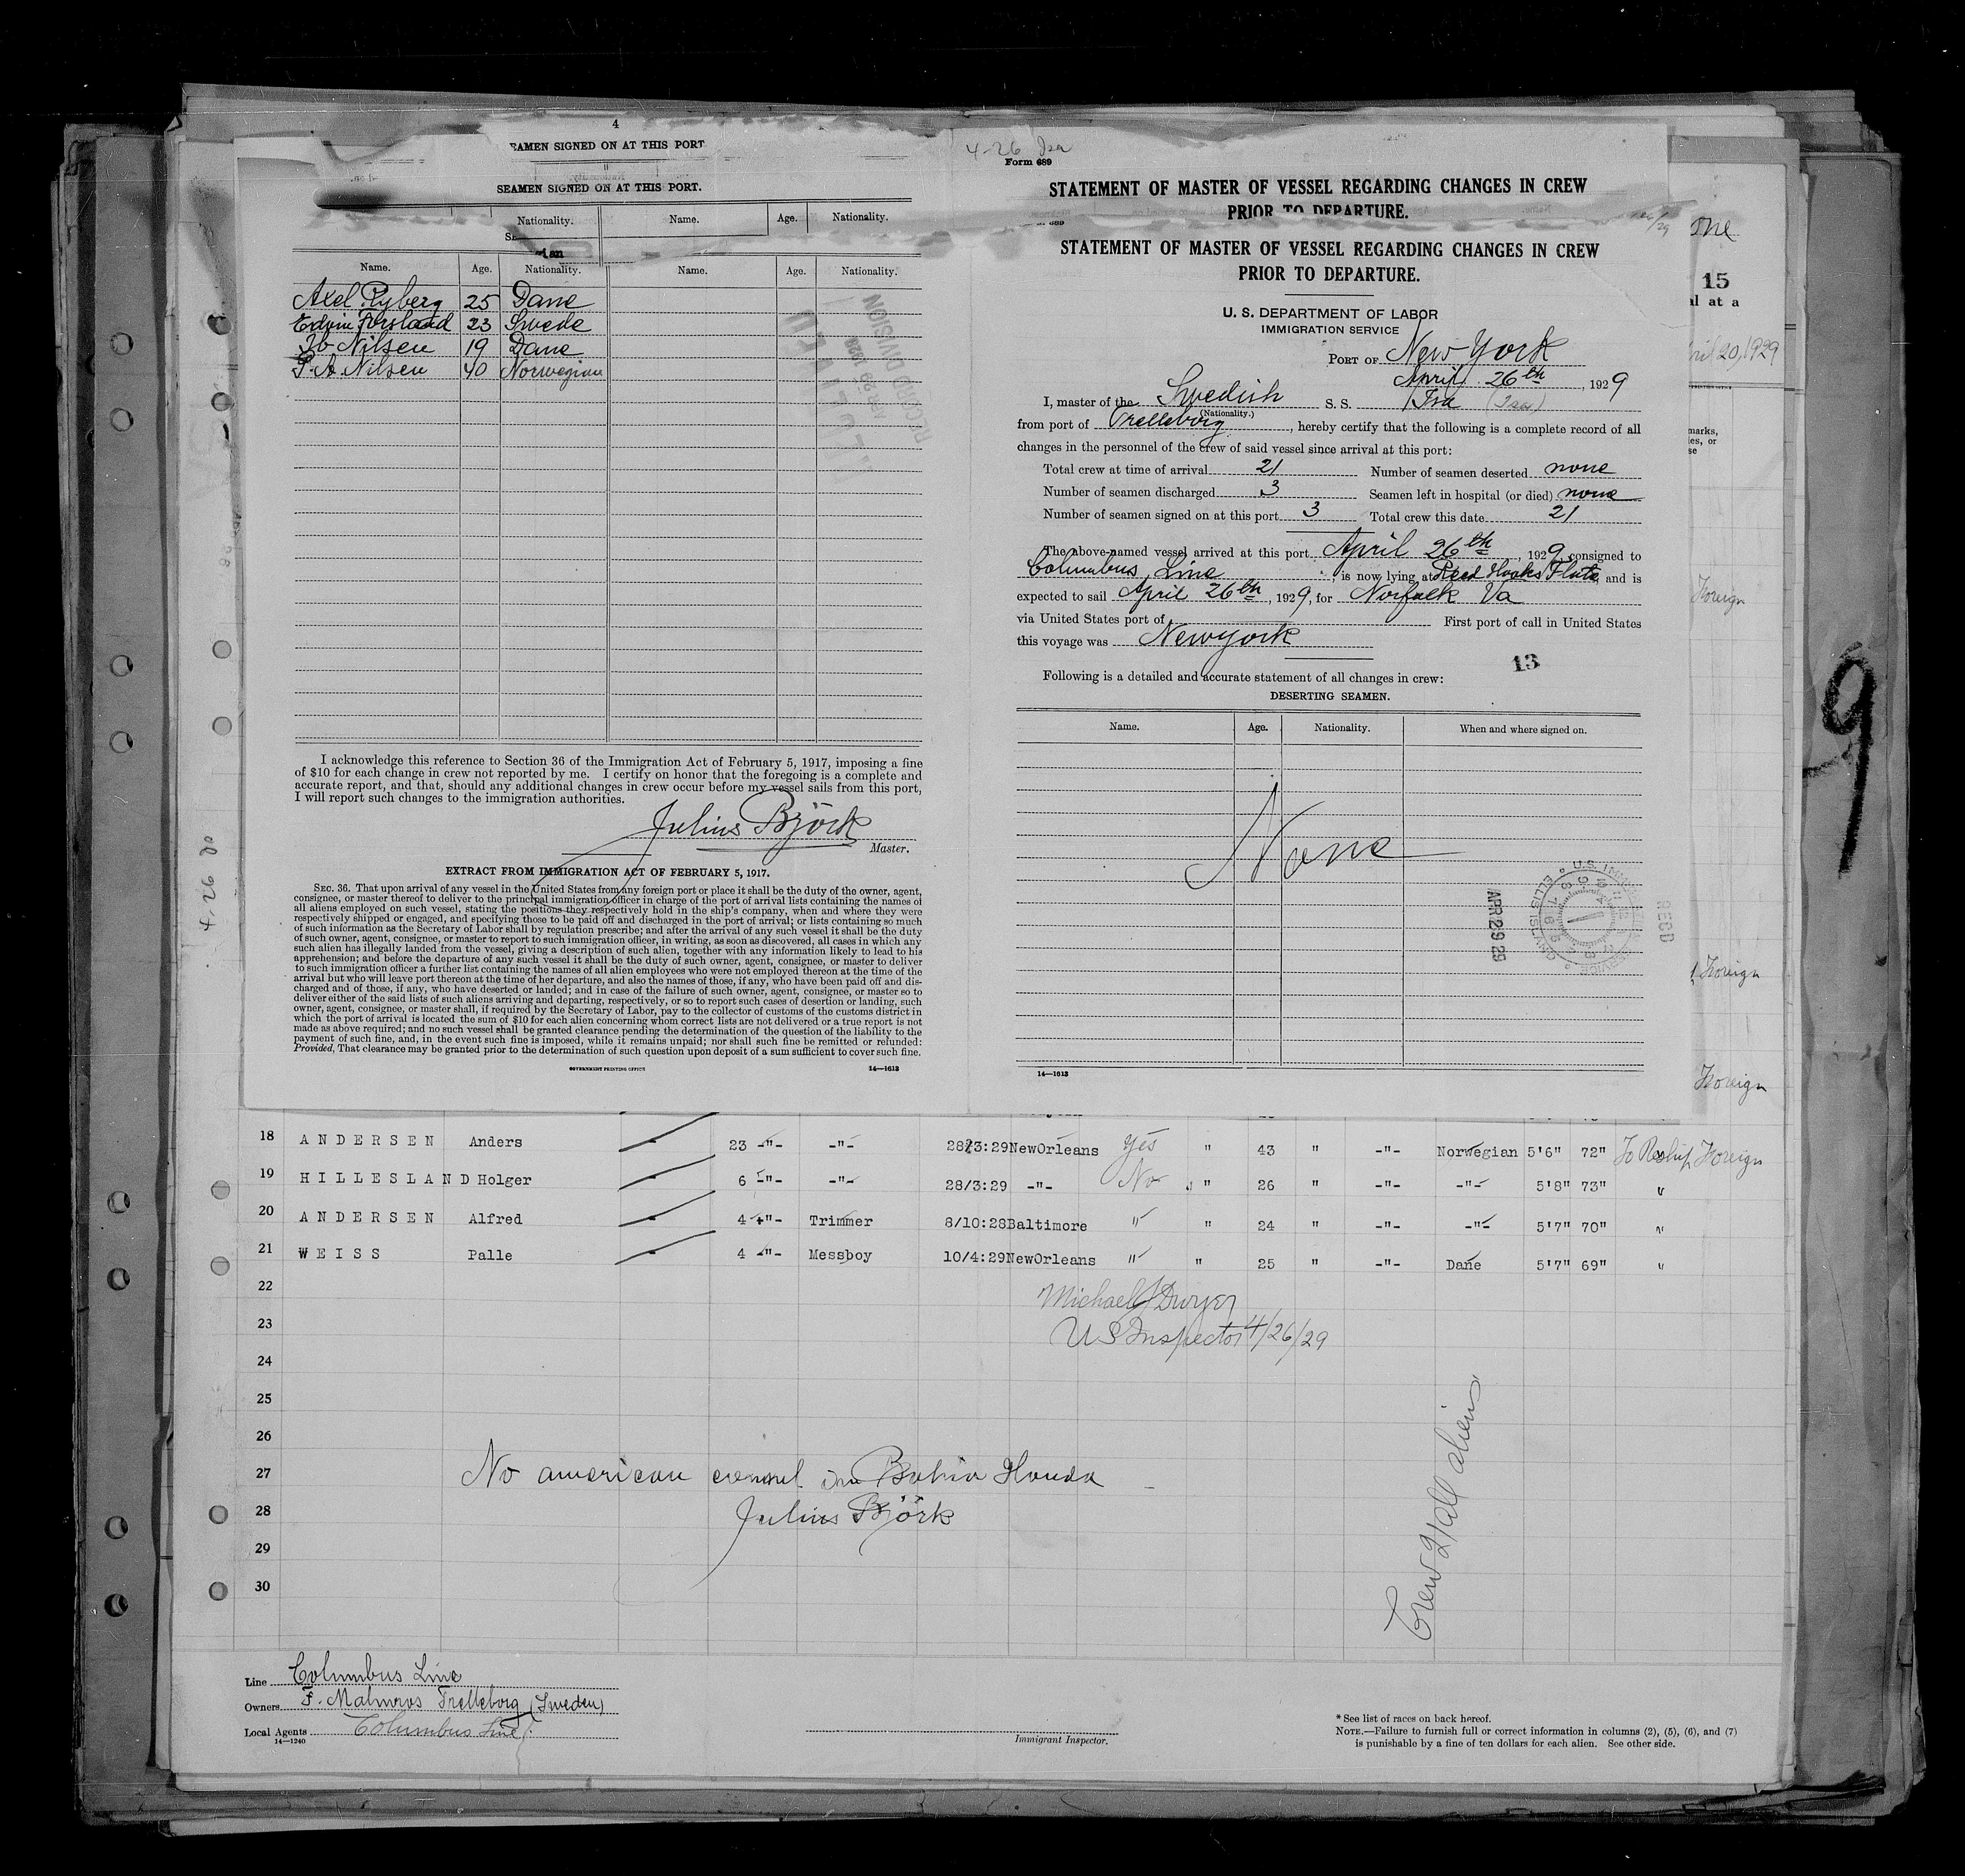 4
SEAMEN SIGNED ON AT THIS PORT
SEAMEN SIGNED ON AT THIS PORT.
Nationality. Name. Age. Nationality.
Name. Age. Nationality. Name. Age. Nationality.
Axel Ryberg 25 Dane
Edvin Forsland 23 Swede
Nilsen 19 Dane
P. A. Nilsen 40 Norwegian
RECORD DIVISION
I acknowledge this reference to Section 36 of the Immigration Act of February 5, 1917, imposing a fine
of $10 for each change in crew not reported by me. I certify on honor that the foregoing is a complete and
accurate report, and that, should any additional changes in crew occur before my vessel sails from this port,
I will report such changes to the immigration authorities.
Julius Björk
Master.
EXTRACT FROM IMMIGRATION ACT OF FEBRUARY 5, 1917.
SEC. 36. That upon arrival of any vessel in the United States from any foreign port or place it shall be the duty of the owner, agent,
consignee, or master thereof to deliver to the principal immigration officer in charge of the port of arrival lists containing the names of
all aliens employed on such vessel, stating the positions they respectively hold in the ship's company, when and where they were
respectively shipped or engaged, and specifying those to be paid off and discharged in the port of arrival; or lists containing so much
of such information as the Secretary of Labor shall by regulation prescribe; and after the arrival of any such vessel it shall be the duty
of such owner, agent, consignee, or master to report to such immigration officer, in writing, as soon as discovered, all cases in which any
such alien has illegally landed from the vessel, giving a description of such alien, together with any information likely to lead to his
apprehension; and before the departure of any such vessel it shall be the duty of such owner, agent, consignee, or master to deliver
to such immigration officer a further list containing the names of all alien employees who were not employed thereon at the time of the
arrival but who will leave port thereon at the time of her departure, and also the names of those, if any, who have been paid off and dis-
charged and of those, if any, who have deserted or landed; and in case of the failure of such owner, agent, consignee, or master so to
deliver either of the said lists of such aliens arriving and departing, respectively, or so to report such cases of desertion or landing, such
owner, agent, consignee, or master shall, if required by the Secretary of Labor, pay to the collector of customs of the customs district in
which the port of arrival is located the sum of $10 for each alien concerning whom correct lists are not delivered or a true report is not
made as above required; and no such vessel shall be granted clearance pending the determination of the question of the liability to the
payment of such fine, and, in the event such fine is imposed, while it remains unpaid; nor shall such fine be remitted or refunded:
Provided, That clearance may be granted prior to the determination of such question upon deposit of a sum sufficient to cover such fine.
GOVERNMENT PRINTING OFFICE 14—1613
4-26 Isa
Form 689
STATEMENT OF MASTER OF VESSEL REGARDING CHANGES IN CREW
PRIOR TO DEPARTURE.
STATEMENT OF MASTER OF VESSEL REGARDING CHANGES IN CREW
PRIOR TO DEPARTURE.
U. S. DEPARTMENT OF LABOR
IMMIGRATION SERVICE
PORT OF New York
April 26th, 1929
I, master of the Swedish S. S. Isa (Isa)
(Nationality.)
from port of Trelleborg, hereby certify that the following is a complete record of all
changes in the personnel of the crew of said vessel since arrival at this port:
Total crew at time of arrival 21 Number of seamen deserted none
Number of seamen discharged 3 Seamen left in hospital (or died) none
Number of seamen signed on at this port 3 Total crew this date 21
The above-named vessel arrived at this port April 26th, 1929, consigned to
Columbus Line, is now lying at Reed Hooks Flats, and is
expected to sail April 26th, 1929, for Norfolk Va
via United States port of First port of call in United States
this voyage was Newyork
13
Following is a detailed and accurate statement of all changes in crew:
DESERTING SEAMEN.
Name. Age. Nationality. When and where signed on.
None
APR 29 29
RECD
14—1613
15
al at a
April 20, 1929
Foreign
Foreign
Foreign
9
4-26 20
18 ANDERSEN Anders 23 -"- -"- 28/3:29 NewOrleans Yes " 43 " -"- Norwegian 5'6" 72" To Reship Foreign
19 HILLESLAND Holger 6 -"- -"- 28/3:29 -"- No " 26 " -"- -"- 5'8" 73" "
20 ANDERSEN Alfred 4 -"- Trimmer 8/10:28 Baltimore " " 24 " -"- -"- 5'7" 70" "
21 WEISS Palle 4 -"- Messboy 10/4:29 NewOrleans " " 25 " -"- Dane 5'7" 69" "
22
Michael J Dwyer
23
U S Inspector 4/26/29
24
25
26
27 No american consul in Bahia Honda
28 Julius Björk
29
30
Crew 21 all aliens
Line Columbus Line
Owners F. Malmros Trelleborg (Sweden)
Local Agents Columbus Line
14—1240
Immigrant Inspector.
* See list of races on back hereof.
NOTE.—Failure to furnish full or correct information in columns (2), (5), (6), and (7)
is punishable by a fine of ten dollars for each alien. See other side.